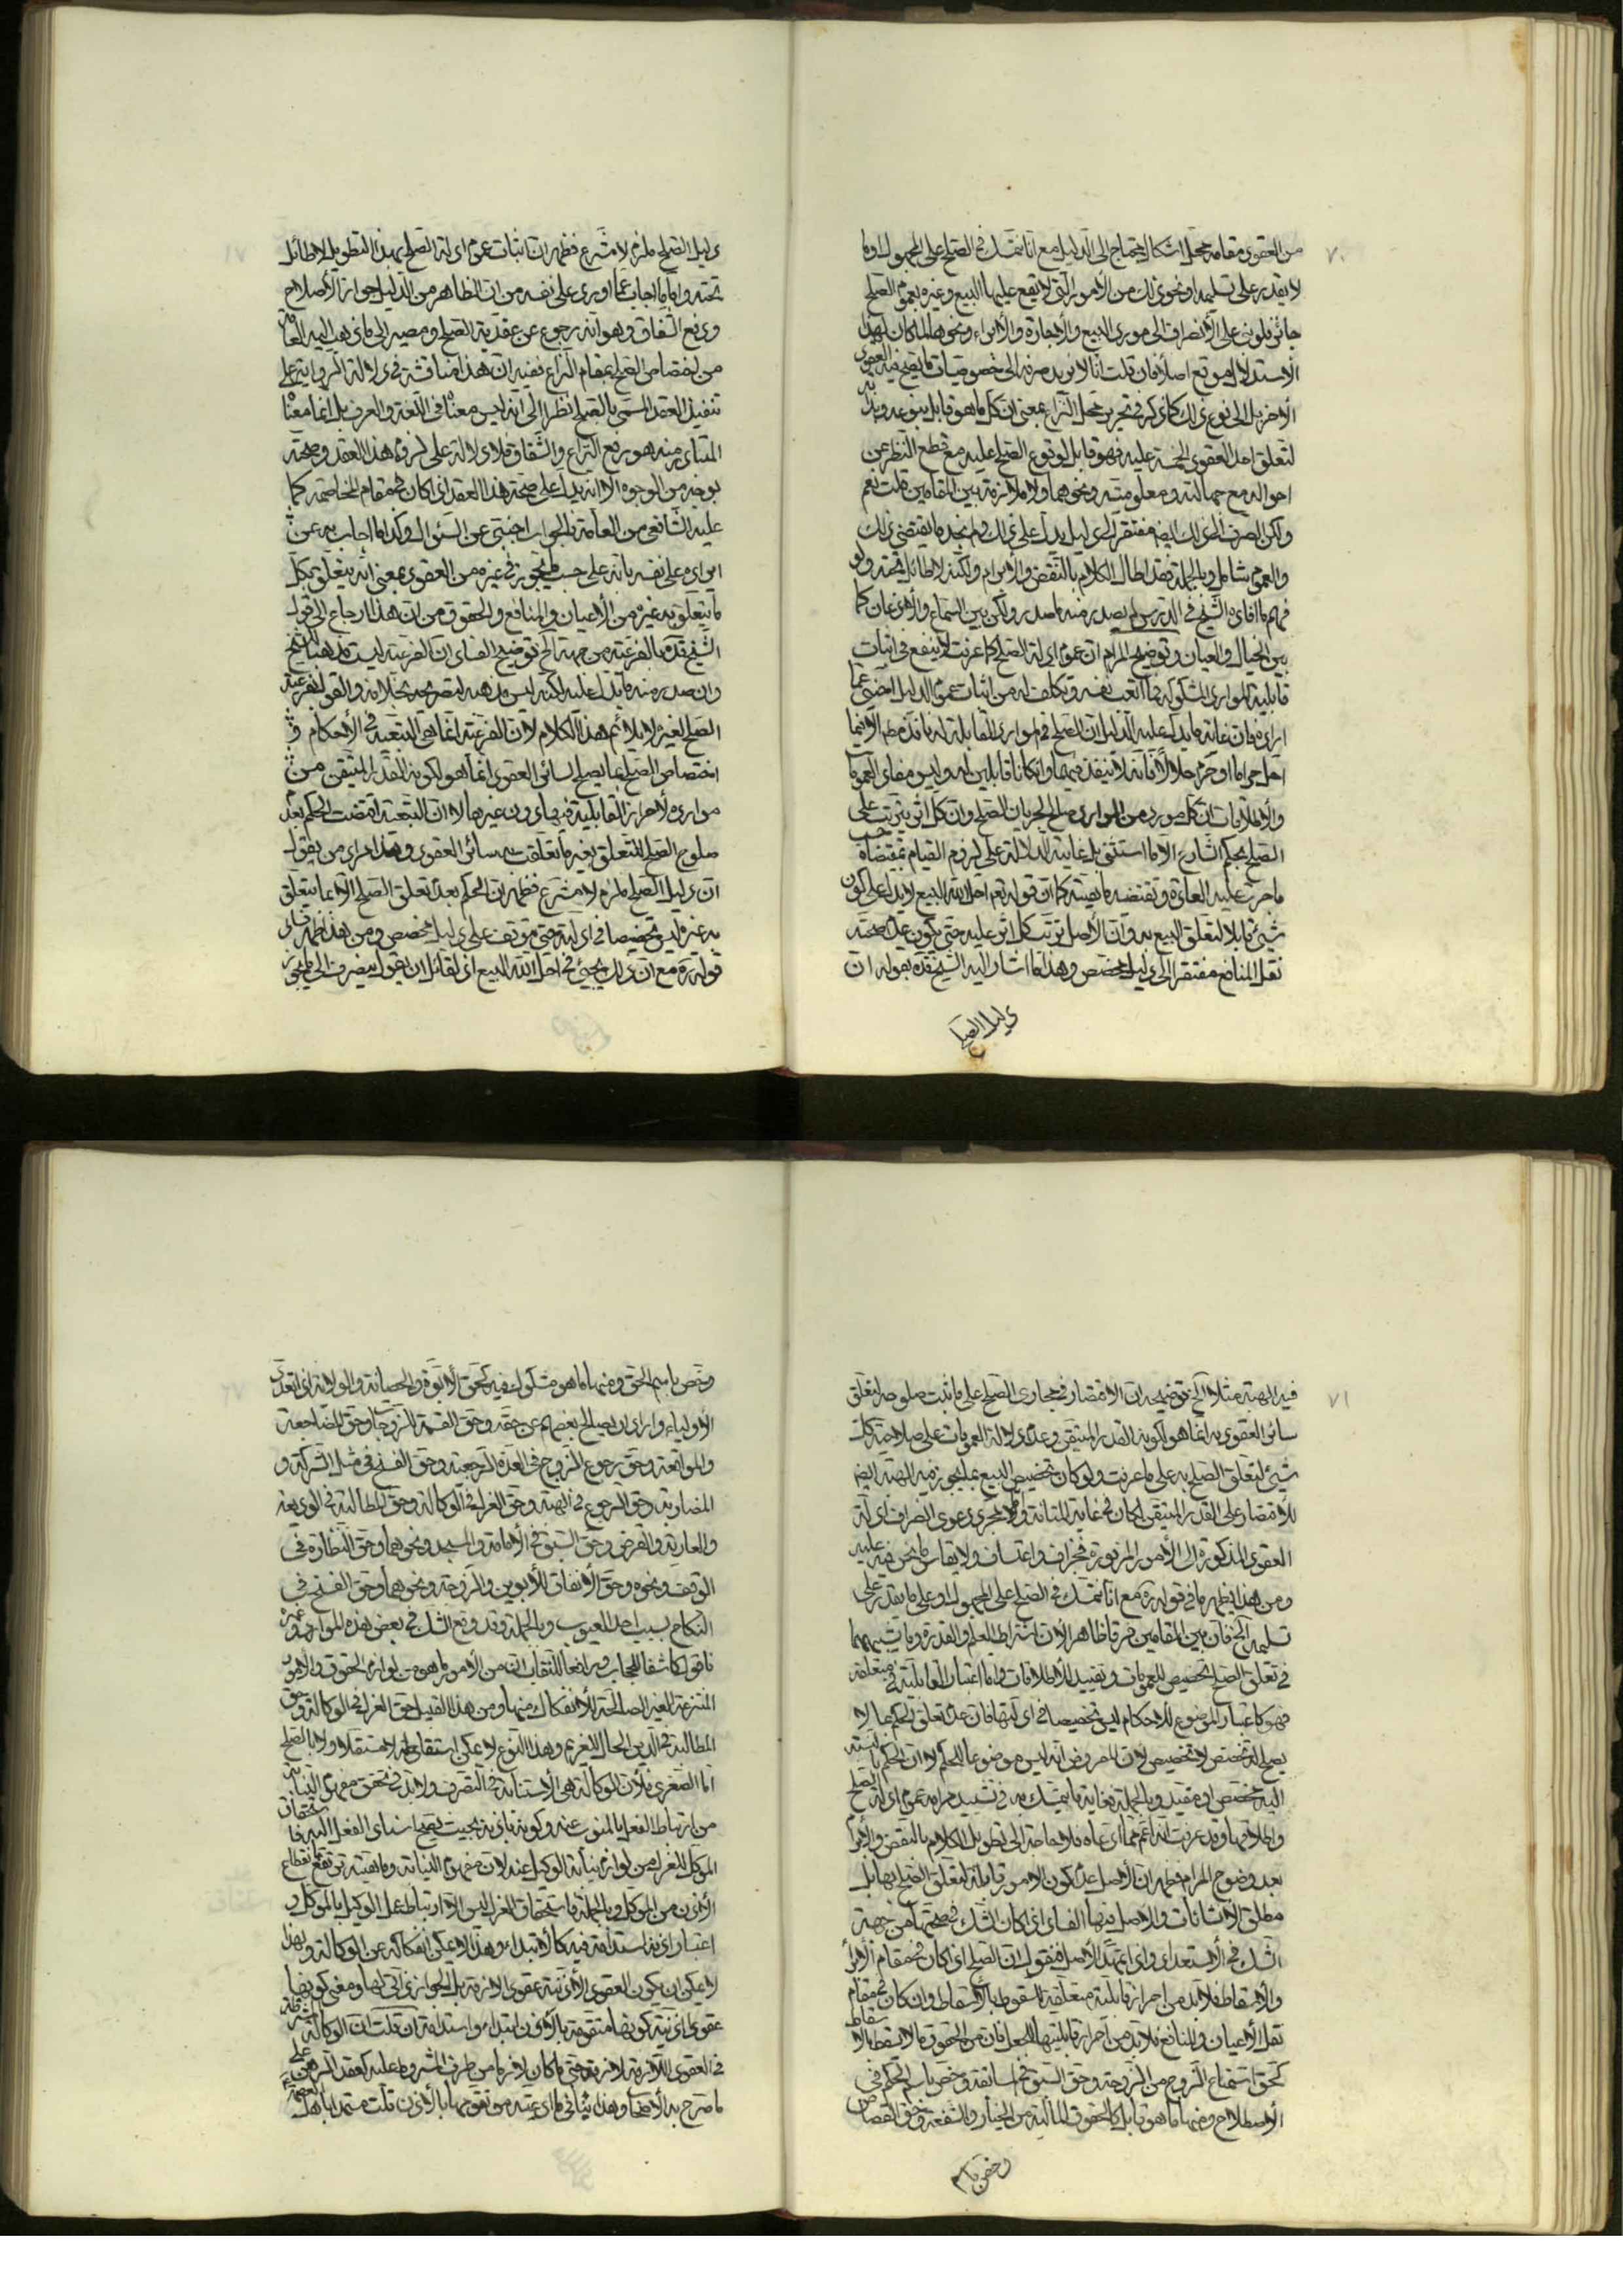 ٧٠
من العقود مقامه محل اشكال يحتاج الى الدليل مع انا نتمسك في الصلح على المجهول او ما
لا يقدر على تسليمه او نحو ذلك من الأمور التي لا يقع عليها البيع وغيره بعموم الصلح
جائز فلو بنى على الانصراف الى مورد البيع والاجارة والابراء ونحوها لما كان لهذا
الاستدلال موقع اصلا فان قلت انا لا نريد صرفه الى خصوصيات ما يصح فيه العقود
الاخر بل الى نوع ذلك كما ذكر في تحرير محل النزاع بمعنى ان كل ما هو قابل بنوعه
لتعلق احد العقود الخمسة عليه فهو قابل لوقوع الصلح عليه مع قطع النظر عن
احواله مع جهالته ومعلوميته ونحوهما ولا ملازمة بين المقامين قلت نعم
ولكن الصرف الى ذلك ايضا مفتقر الى دليل يدل على ذلك ولم نجد ما يقتضي ذلك
والعموم شامل وبالجملة فقد اطال الكلام بالنقض والابرام ولكنه لا طائل تحته ولو
فهم ما افاده الشيخ في الدرس لم يصدر منه ما صدر ولكن بين السماع والاذعان كما
بين الخيال والعيان وتوضيح المرام ان عموم ادلة الصلح كما عرفت لا ينفع في اثبات
قابلية الموارد المشكوكة فما اتعب نفسه وتكلف له من اثبات عموم الدليل اجنبي عما
اراده فان غاية ما يدل عليه الدليل ان الصلح في الموارد القابلة له نافذ مطلقا الا فيما
احل حراما او حرم حلالا فانه لا ينفذ فيهما وان كانا قابلين له وليس مفاد العمومات
والاطلاقات ان كل مورد من الموارد صالح لجريان الصلح وان كل اثر يترتب على
الصلح بحكم الشارع الا ما استثنى بل غايته الدلالة على لزوم القيام بمقتضاه حسب
ما جرت عليه العادة وتقتضيه ماهيته كما ان قوله تعم احل الله البيع لا يدل على كون
شيئ قابلا لتعلق البيع به وان الاصل ترتب كل اثر عليه حتى يكون عدم صحة
نقل المنافع مفتقرا الى دليل مخصص وهذا ما اشار اليه الشيخ قده بقوله ان
دليل الصلح
دليل الصلح ملزم لا مشرع فظهر ان اثبات عموم ادلة الصلح بهذا التطويل لا طائل
تحته واما ما اجاب عما اورد على نفسه من ان الظاهر من الدليل جواز الاصلاح
ودفع الشقاق وهو انه رجوع عن عقدية الصلح ومصير الى ما ذهب اليه العامة
من اختصاص الصلح بمقام النزاع ففيه ان هذا مناقشة في دلالة الرواية على
تنفيذ العقد المسمى بالصلح نظرا الى انه ليس معناه في اللغة والعرف بل انما معناه
المتبادر منه هو رفع النزاع والشقاق فلا دلالة على لزوم هذا العقد وصحته
بوجه من الوجوه الا انه يدل على صحة هذا العقد اذا كان في مقام المخاصمة كما
عليه الشافعي من العامة فالجواب اجنبي عن السئوال وكذا ما اجاب به عن
ايراده على نفسه بانه على حسب ما يجوز في غيره من العقود بمعنى انه يتعلق بكل
ما يتعلق به غيره من الاعيان والمنافع والحقوق من ان هذا ارجاع الى قول
الشيخ قده بالفرعية من جهة الخ توضيح الفساد ان الفرعية ليست مذهبا للشيخ
وان صدر منه ما يدل عليه لكنه ليس مذهبه لتصريحه بخلافه والقول بفرعية
الصلح لغيره لا يلائم هذا الكلام لان الفرعية انما هي التبعية في الاحكام و
اختصاص الصلح بما يصلح لسائر العقود انما هو لكونه القدر المتيقن من
موارده لاحراز القابلية فيها دون غيرها لا ان التبعية اقتضت الحكم بعدم
صلوح الصلح للتعلق بغير ما تعلقت به سائر العقود وهذا مراد من يقول
ان دليل الصلح ملزم لا مشرع فظهر ان الحكم بعدم تعلق الصلح الا بما يتعلق
به غيره ليس تخصيصا في ادلته حتى يتوقف على دليل مخصص ومن هنا ظهر فساد
قوله ره مع ان ذلك يجيئ في احل الله البيع اذ لقائل ان يقول ينصرف الى ما يجوز
٧١
فيه الهبة مثلا الخ توضيحه ان الاقتصار في مجاري الصلح على ما ثبت صلوحه لتعلق
سائر العقود به انما هو لكونه القدر المتيقن وعدم دلالة العمومات على صلاحية كل
شيئ لتعلق الصلح به على ما عرفت ولو كان تخصيص البيع بما يجوز فيه الهبة ايضا
للاقتصار على القدر المتيقن لكان في غاية المتانة واما مجرد دعوى انصراف ادلة
العقود المذكورة الى الأمور المزبورة فجزاف واعتساف ولا يقاس ما نحن فيه عليه
ومن هذا يظهر ما في قوله ره مع انا نتمسك في الصلح على المجهول او على ما يقدر على
تسليمه الخ فان بين المقامين فرقا ظاهرا لان اشتراط العلم والقدرة وما يشبههما
في تعلق الصلح تخصيص للعمومات وتقييد للاطلاقات واما اعتبار القابلية في متعلقه
فهو كاعتبار الموضوع للاحكام ليس تخصيصا في ادلتها فان عدم تعلق الحكم بما لا
يصلح له تخصص لا تخصيص لان المفروض انه ليس موضوعا للحكم لا ان الحكم بالنسبة
اليه مخصص او مقيد وبالجملة فغاية ما يتمسك به في تشييد مرامه عموم ادلة الصلح
واطلاقها وقد عرفت انه اعم مما ادعاه فلا حاجة الى تطويل الكلام بالنقض والابرام
بعد وضوح المرام فظهر ان الاصل عدم كون الامور قابلة لتعلق الصلح بها بل
مطلق الانشائات والاصل فيها الفساد اذا كان الشك في صحتها من جهة
الشك في الاستعداد واذا تمهد الاصل فنقول ان الصلح اذا كان في مقام الابراء
والاسقاط فلا بد من احراز قابلية متعلقه للسقوط بالاسقاط وان كان في مقام
نقل الاعيان والمنافع فلا بد من احراز قابليتها للنقل فان من الحقوق ما لا يسقط بالاسقاط
كحق استمتاع الزوج من الزوجة وحق السبق في المسابقة وخص باسم الحكم في
الاصطلاح ومنها ما هو قابل كالحقوق المالية من الخيار والشفعة وحق القصاص
وخص باسم
وخص باسم الحق ومنها ما هو مشكوك فيه كحق الابوة والحضانة والولاية اذا تعدد
الاولياء واراد ان يصالح بعضهم عن حقه وحق القسمة للزوجات وحق المضاجعة
والمواقعة وحق رجوع الزوج في العدة الرجعية وحق الفسخ في مثل الشركة و
المضاربة وحق الرجوع في الهبة وحق العزل في الوكالة وحق المطالبة في الوديعة
والعارية والقرض وحق السبق في الامامة والمسجد ونحوهما وحق النظارة في
الوقف ونحوه وحق الانفاق للأبوين والزوجة ونحوهما وحق الفسخ في
النكاح بسبب احد العيوب وبالجملة وقد وقع الشك في بعض هذه الموارد وغيره
فاقول كاشفا للحجاب ورافعا للنقاب ان من الامور ما هو من لوازم الحقوق والامور
المنتزعة الغير الصالحة للانفكاك منها ومن هذا القبيل حق العزل في الوكالة وحق
المطالبة في الدين الحال للغريم وهذا النوع لا يمكن اسقاطه لا مستقلا ولا بالصلح
اما الصغرى فلأن الوكالة هي الاستنابة في التصرف ولا بد في تحقق مفهوم النيابة
من ارتباط الفعل بالمنوب عنه وكونه باذنه بحيث يصح اسناد الفعل اليه فاستحقاق
الموكل للعزل من لوازم نيابة الوكيل عنه لان مفهوم النيابة وماهيته ترتفع بانقطاع
الاذن من الموكل وبالجملة فاستحقاق العزل ليس الا ارتباط عمل الوكيل بالموكل و
اعتبار اذنه استدامة فيه كالابتداء وهذا لا يمكن انفكاكه عن الوكالة ولهذا
لا يمكن ان يكون العقود الأذنية عقود لازمة بل الجواز ذاتي لها ومعنى كونها
عقود اذنية كونها متقومة بالاذن ابتداء واستدامة ان قلت ان الوكالة المشترطة
في العقود اللازمة لازمة حتى ما كان لازما من طرف المشروط عليه كعقد الرهن على
ما صرح به الاصحاب وهذا ينافي ما ادعيته من تقومها بالأذن قلت مستمدا باهل العصمة